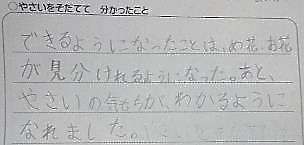 ○やさいをそだてて 分かったこと
できるようになったことは、め花、お花
が見分けれるようになった。あと、
やさいの気もちが、わかるように
なれました。